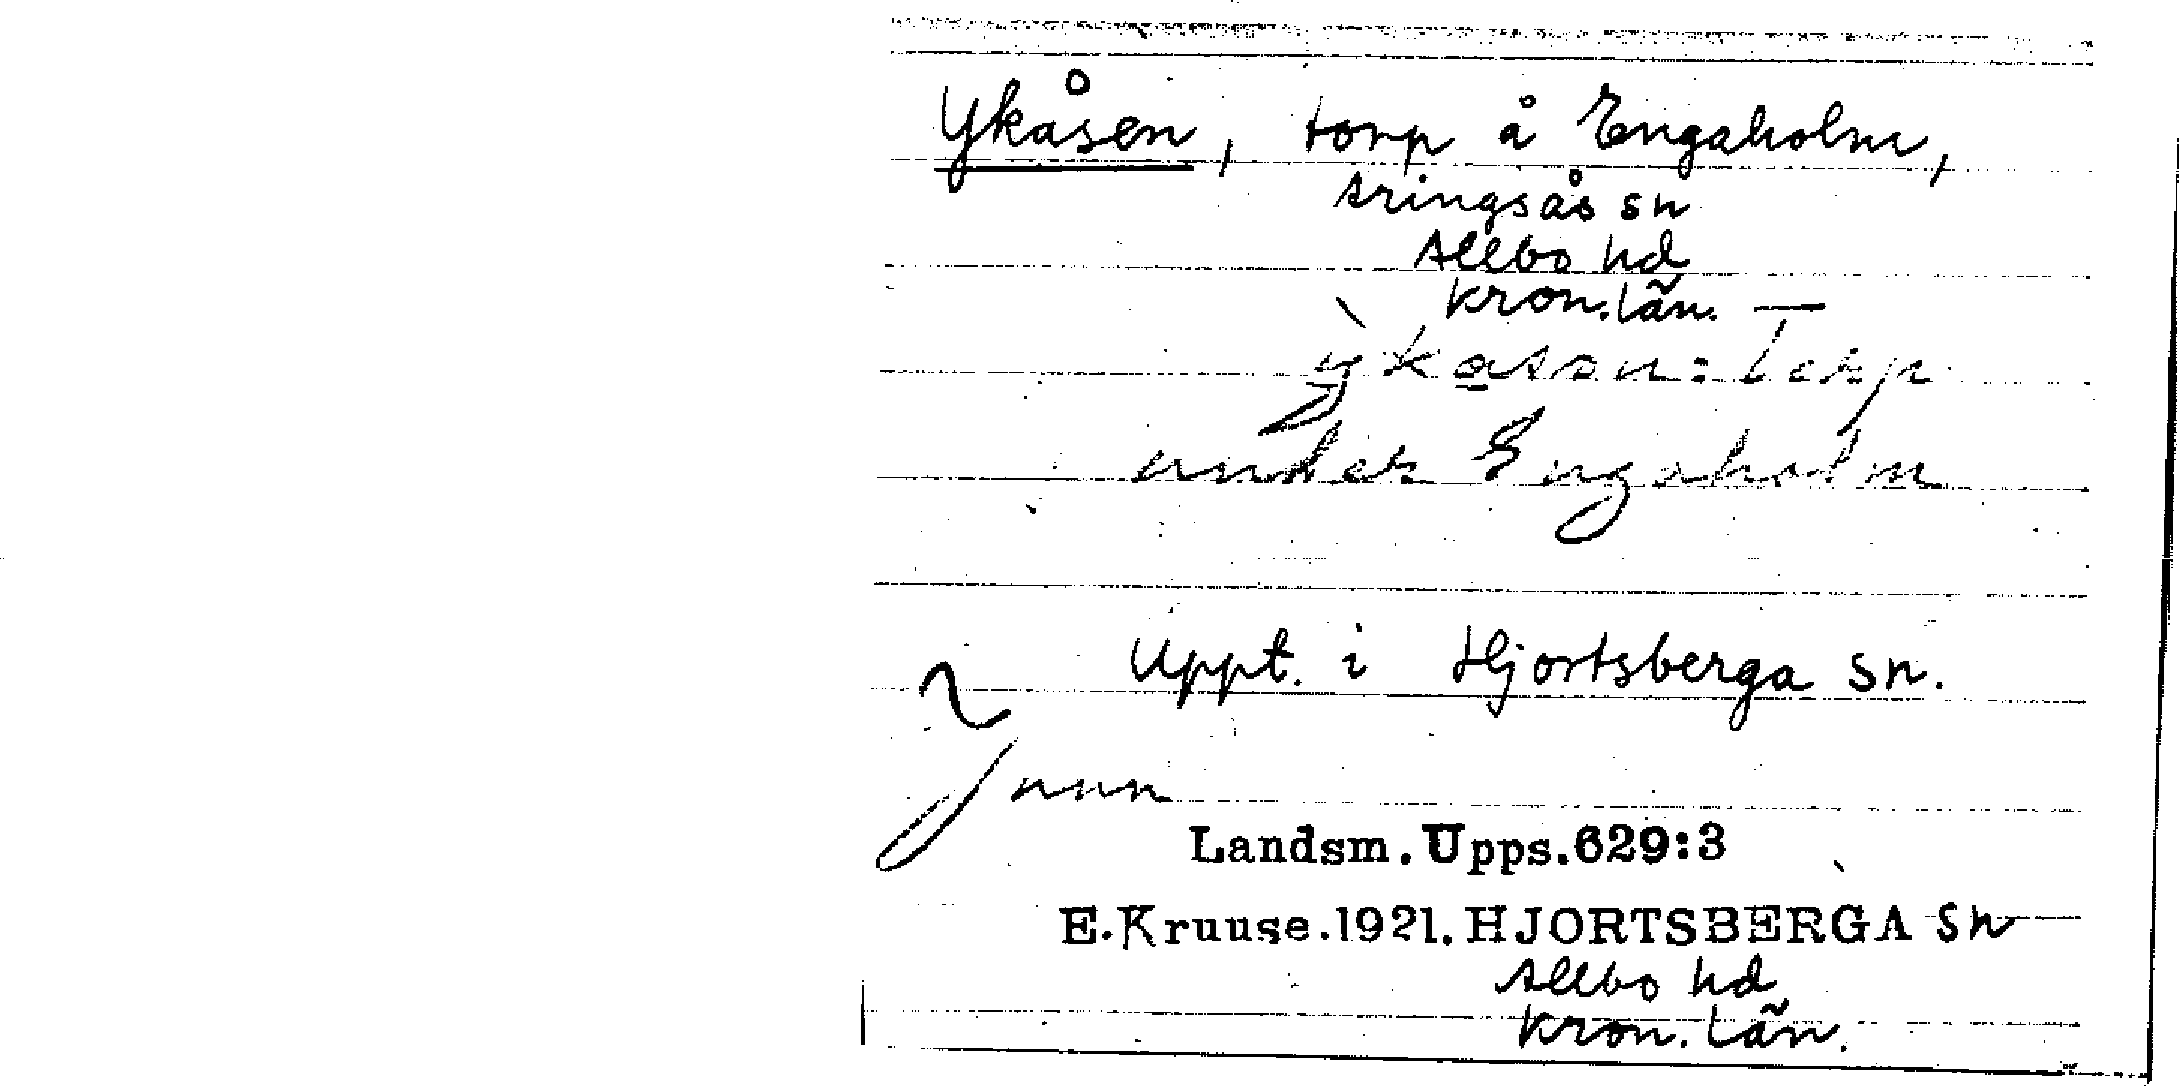 Ykåsen, torp å Engaholm,
Aringsås sn
Allbo hd
Kron. län. —
Torp
under Engaholm
Uppt. i Hjortsberga sn.
Landsm. Upps. 629:3
E. Kruuse. 1921. HJORTSBERGA sn
Allbo hd
Kron. län.